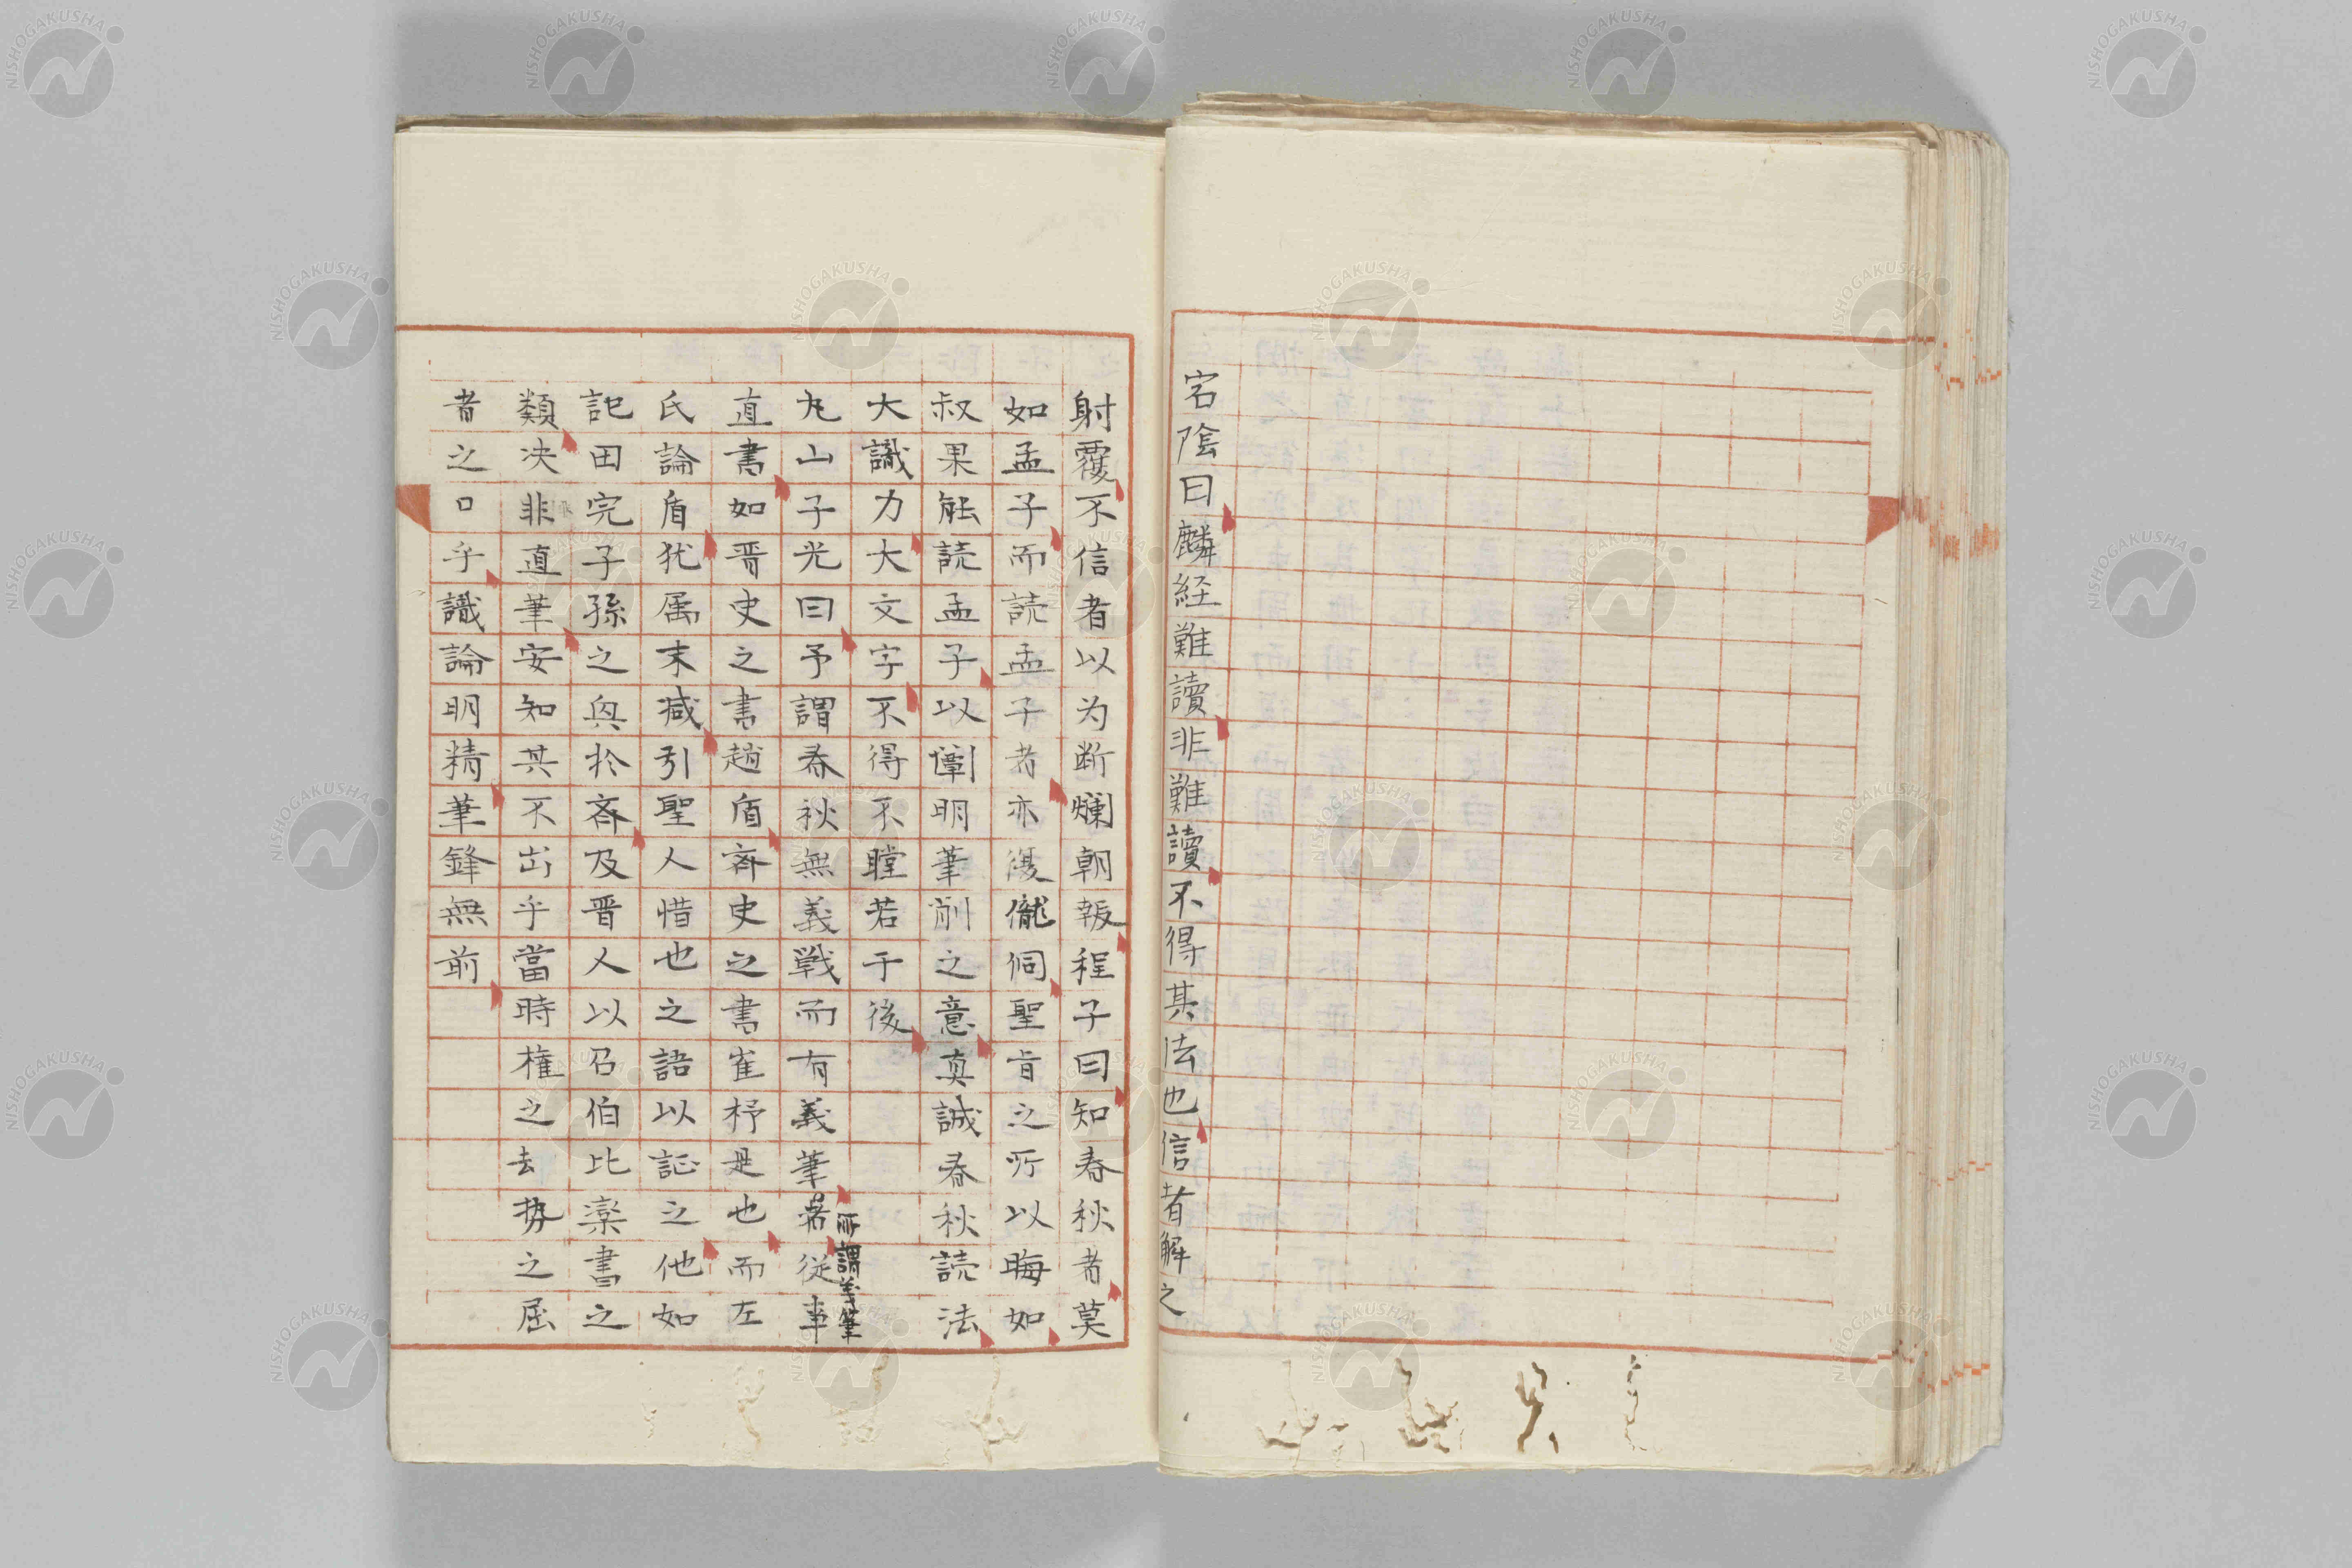 宕陰曰麟経難讀非難讀不得其法也信者解之
射覆不信者以为断爛朝報程子曰知春秋者莫
如孟子而読孟子者亦復儱侗聖旨之所以晦如
叔果能読孟子以闡明筆削之意真誠春秋読法
大識力大文字不得不瞠若于後
丸山子光曰予謂春秋無義戦而有義筆所謂義筆者従事
直書如晋史之書趙盾斉史之書崔杼是也而左
氏論盾犹属末减引聖人惜也之語以証之他如
記田完子孫之興於斉及晋人以召伯比欒書之
類决非直筆安知其不出乎當時權之去势之屈
者之口乎識論明精筆鋒無前
NISHOGAKUSHA